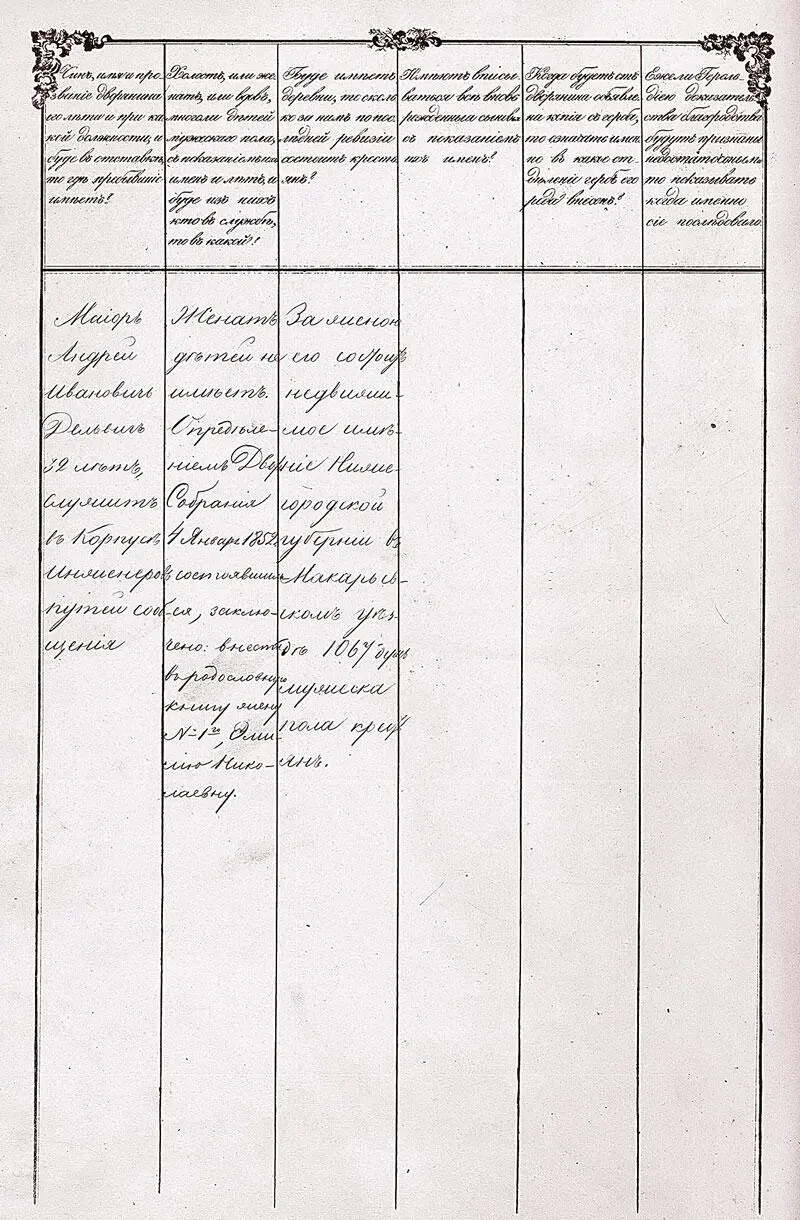 Чинъ, имя и про
званіе дворянина
его лѣта и при ка
кой должности, и
буде въ отставкѣ,
то гдѣ пребываніе
имѣетъ?
Холостъ, или же
натъ, или вдовъ,
многоли дѣтей
мужескаго пола,
съ показаніемъ ихъ
именъ и лѣтъ, и
буде изъ нихъ
кто въ службѣ,
то въ какой?
Буде имѣетъ
деревни, то сколь
ко за нимъ по пос
лѣдней ревизіи
состоитъ кресть
янъ?
Имѣютъ вписы
ваться всѣ вновь
рожденные сыновья
съ показаніемъ
ихъ именъ?
Когда будетъ отъ
дворянина объявле
на копія съ герба,
то означать имян
но въ какое от
дѣленіе гербъ его
рода внесенъ?
Ежели Героль
діею доказатель
ства благородства
будутъ признаны
недостаточными
то показывать
когда именно
сіе послѣдовало
Маіоръ
Андрей
Ивановичъ
Дельвигъ
32 лѣтъ,
служитъ
въ Корпусѣ
Инженеровъ
путей сооб-
щенія
Женатъ
дѣтей не
имѣетъ.
Опредѣле-
ніемъ Двор
Собранія
4 Января 1852
состоявшим-
ся, заклю-
чено: внести
въ родословную
книгу жену
№ 1го, Эми-
лію Нико-
лаевну.
За женою
его состоитъ
недвижи-
мое имѣ-
ніе Ниже-
городской
губерніи въ
Макарьев-
скомъ уѣз-
дѣ 1067 душъ
мужеска
пола кресть
янъ.